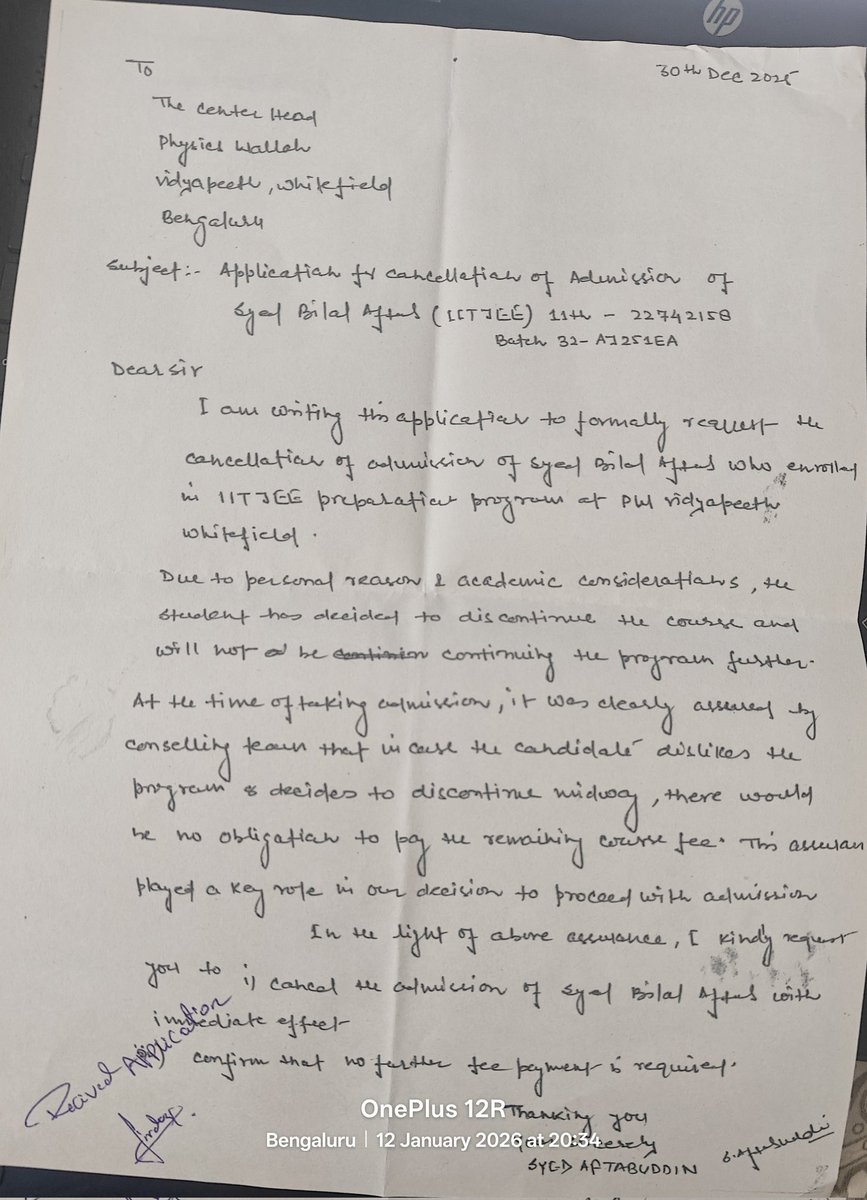 hp
To
30th Dec 2025
The Center Head
Physics Wallah
Vidyapeeth, Whitefield
Bengaluru
Subject:- Application for cancellation of Admission of
Syed Bilal Aftab (IITJEE) 11th - 22742158
Batch 32- AJ251EA
Dear sir
I am writing this application to formally request the
cancellation of admission of Syed Bilal Aftab who enrolled
in IITJEE preparation program at PW Vidyapeeth
Whitefield.
Due to personal reason & academic considerations, the
student has decided to discontinue the course and
will not be continuing the program further.
At the time of taking admission, it was clearly assured by
conselling team that in case the candidate dislikes the
program & decides to discontinue midway, there would
be no obligation to pay the remaining course fee. This assuran
played a key role in our decision to proceed with admission
In the light of above assurance, I kindly request
you to i) cancel the admission of Syed Bilal Aftab with
immediate effect
confirm that no further fee payment is required.
Recived Application
Thanking you
sincerely
SYED AFTABUDDIN
S. Aftabuddin
OnePlus 12R
Bengaluru | 12 January 2026 at 20:34